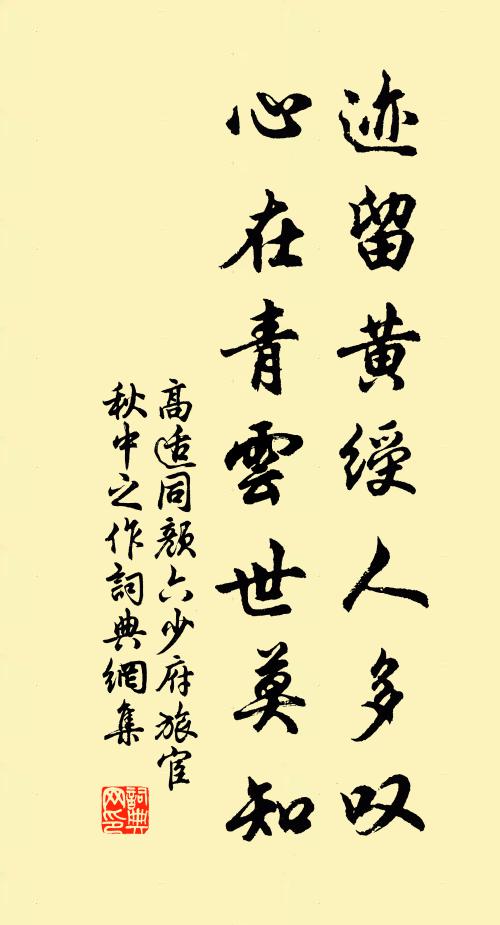 迹留黄綬人多叹
心在青雲世莫知
高适同颜六少府旅宦
秋中之作詞典網集
詞典网印